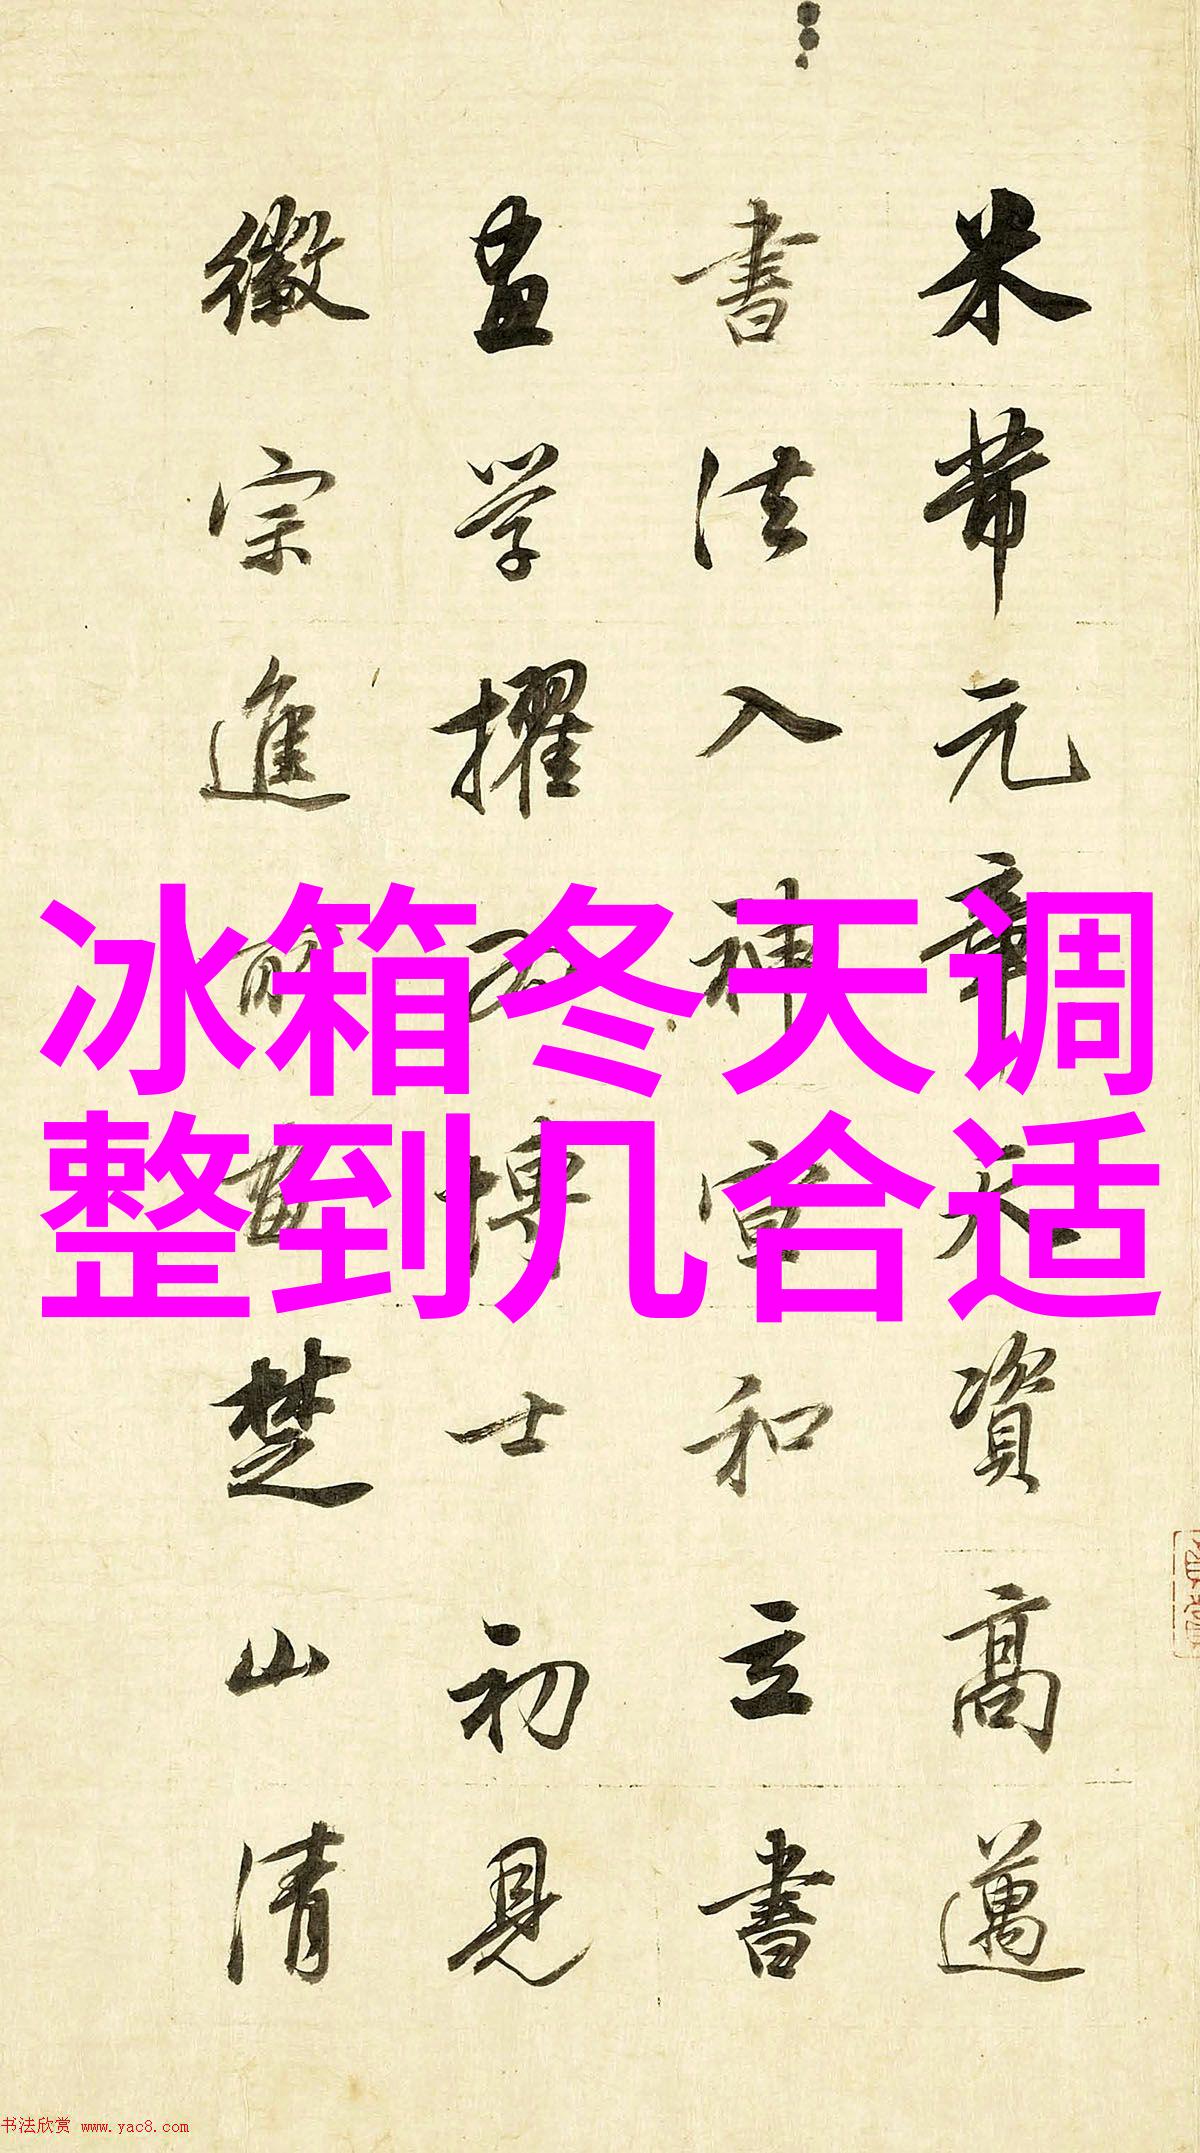 米芾元章天資高邁
書法入神宣和立書
畫學擢為博士初見
徽宗進所畫楚山清
冰箱冬天调
整到几合适
书法欣赏 www.yac8.com